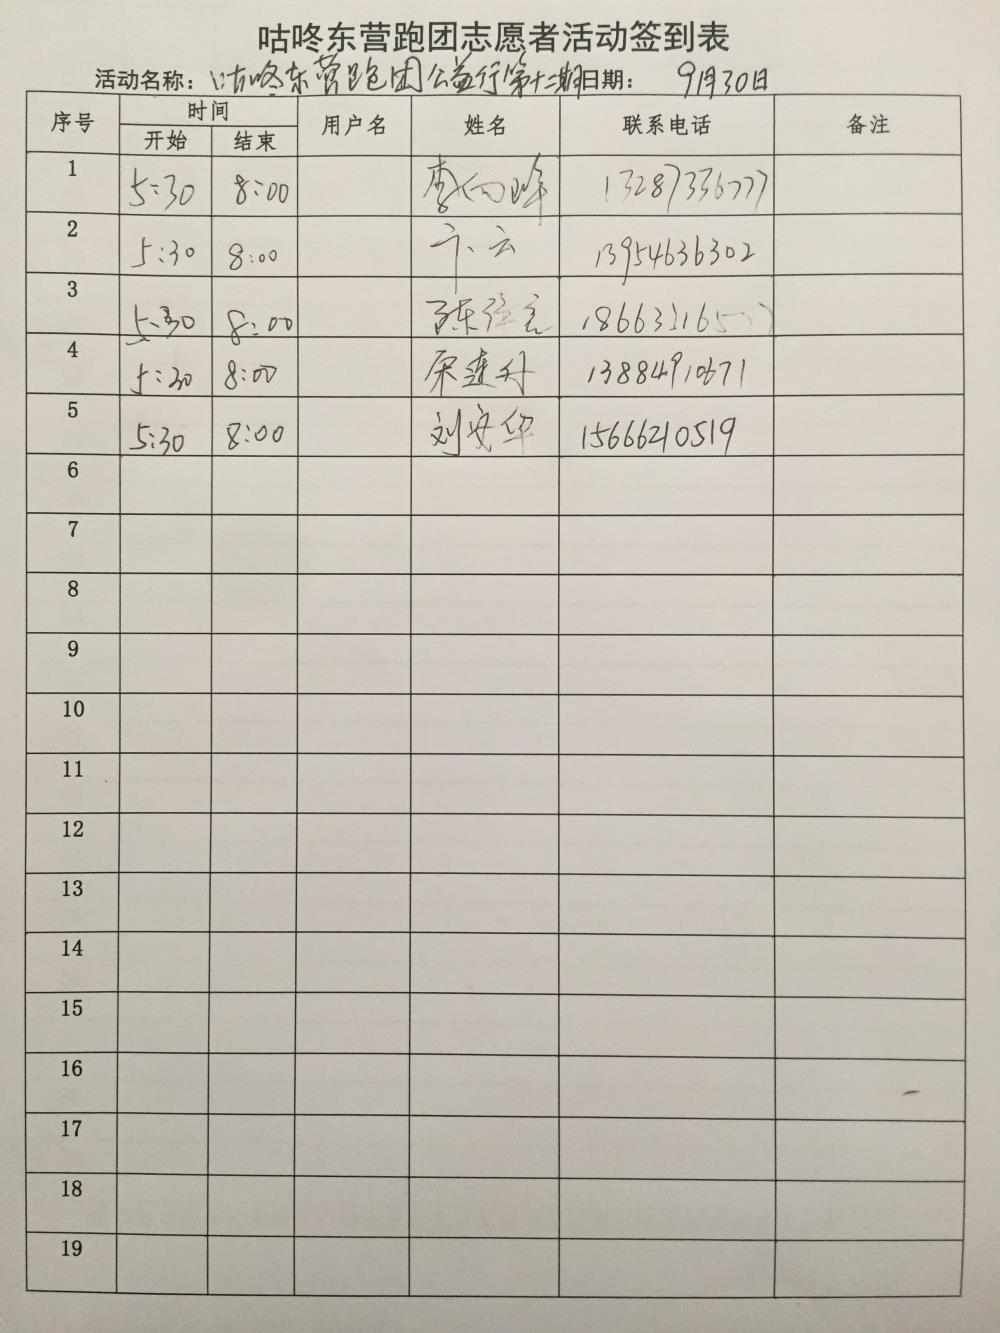 咕咚东营跑团志愿者活动签到表
活动名称：咕咚东营跑团公益行第十二期 日期：9月30日
序号 时间 用户名 姓名 联系电话 备注
开始 结束
1 5:30 8:00 李 13287336777
2 5:30 8:00 卞云 13954636302
3 5:30 8:00 陈 186633165
4 5:30 8:00 宋连升 13884910671
5 5:30 8:00 刘安华 15666210519
6
7
8
9
10
11
12
13
14
15
16
17
18
19